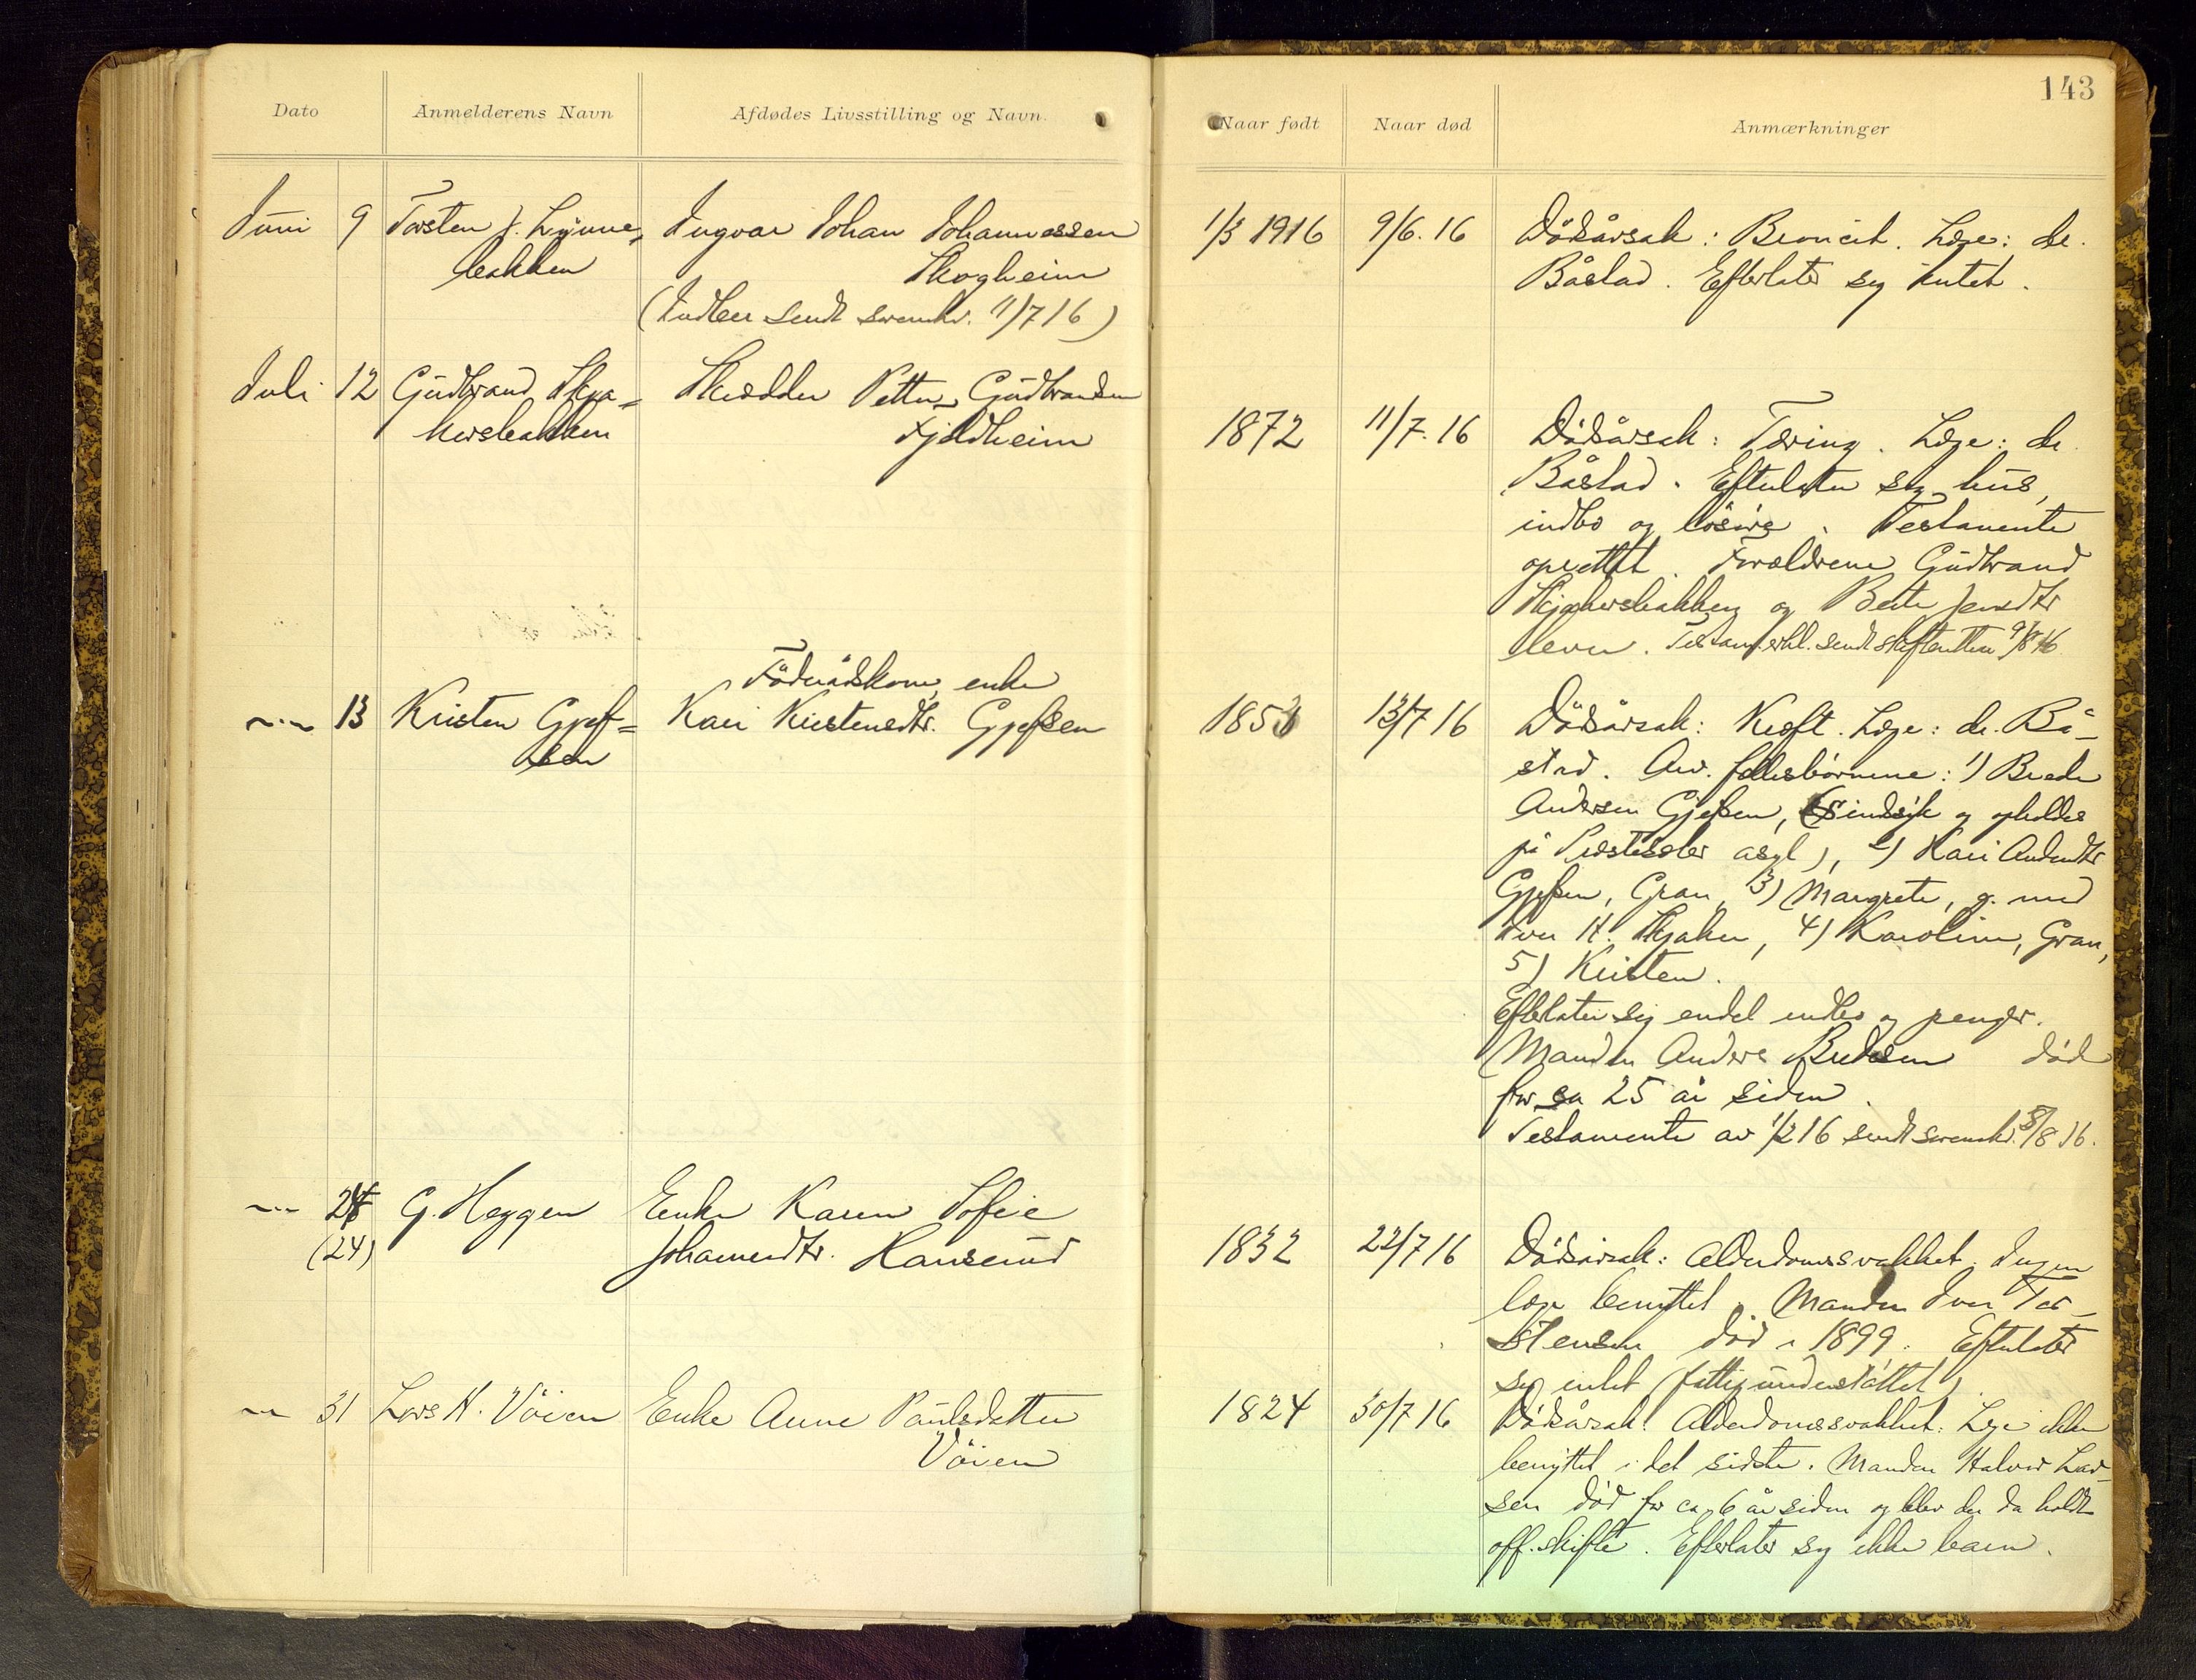 143
Dato Anmelderens Navn Afdødes Livsstilling og Navn. Naar født Naar død Anmærkninger
Juni 9 Torsten J. Lynne-
bakken
Ingvar Johan Johannessen
Skogheim
(Indber sendt sorenskr. 11/7 16)
1/3 1916 9/6. 16
Dödsårsak: Broncit. Læge: dr.
Båstad. Efterlater sig intet.
Juli 12 Gudbrand Skja-
kersbakken
Skrædder Petter Gudbrandsen
Fjeldheim
1872 11/7. 16
Dödsårsak: Tæring. Læge: dr.
Båstad. Efterlater sig hus,
indbo og lösöre. Testamente
oprettet. Forældrene Gudbrand
Skjakersbakken og Berte Jensdtr
lever. Testam. erkl. sendt skifteretten 9/8 16
—"— 13 Kristen Gjef-
sen
Föderådskone, enke
Kari Kristensdtr. Gjefsen
1853 13/7 16
Dödsårsak: Kræft. Læge: dr. Bå-
stad. Arv. fellesbörnene: 1) Brede
Andersen Gjefsen, (sindssyk og opholdes
på Prestesæter asyl), 2) Kari Andersdtr
Gjefsen, Gran, 3) Margrete, g. med
Iver H. Skjaker, 4) Karoline, Gran,
5) Kristen.
Efterlater sig endel indbo og penger.
Manden Anders Bredesen död
for ca 25 år siden.
Testamente av 1/2 16 sendt sorenskr. 3/8 16.
—"— 24 G. Heggen
(24)
Enke Karen Sofie
Johannesdtr. Hanserud
1832 22/7 16
Dödsårsak: Alderdomssvakhet. Ingen
læge benyttet. Manden Iver Tor-
stensen död i 1899. Efterlater
sig intet (fattigunderstöttet)
—"— 31 Lars H. Vöien
Enke Anne Paulsdatter
Vöien
1824 30/7 16
Dödsårsak: Alderdomssvakhet. Læge ikke
benyttet i det sidste. Manden Halvor Lar-
sen död for ca 6 år siden og blev der da holdt
off. skifte. Efterlater sig ikke barn.